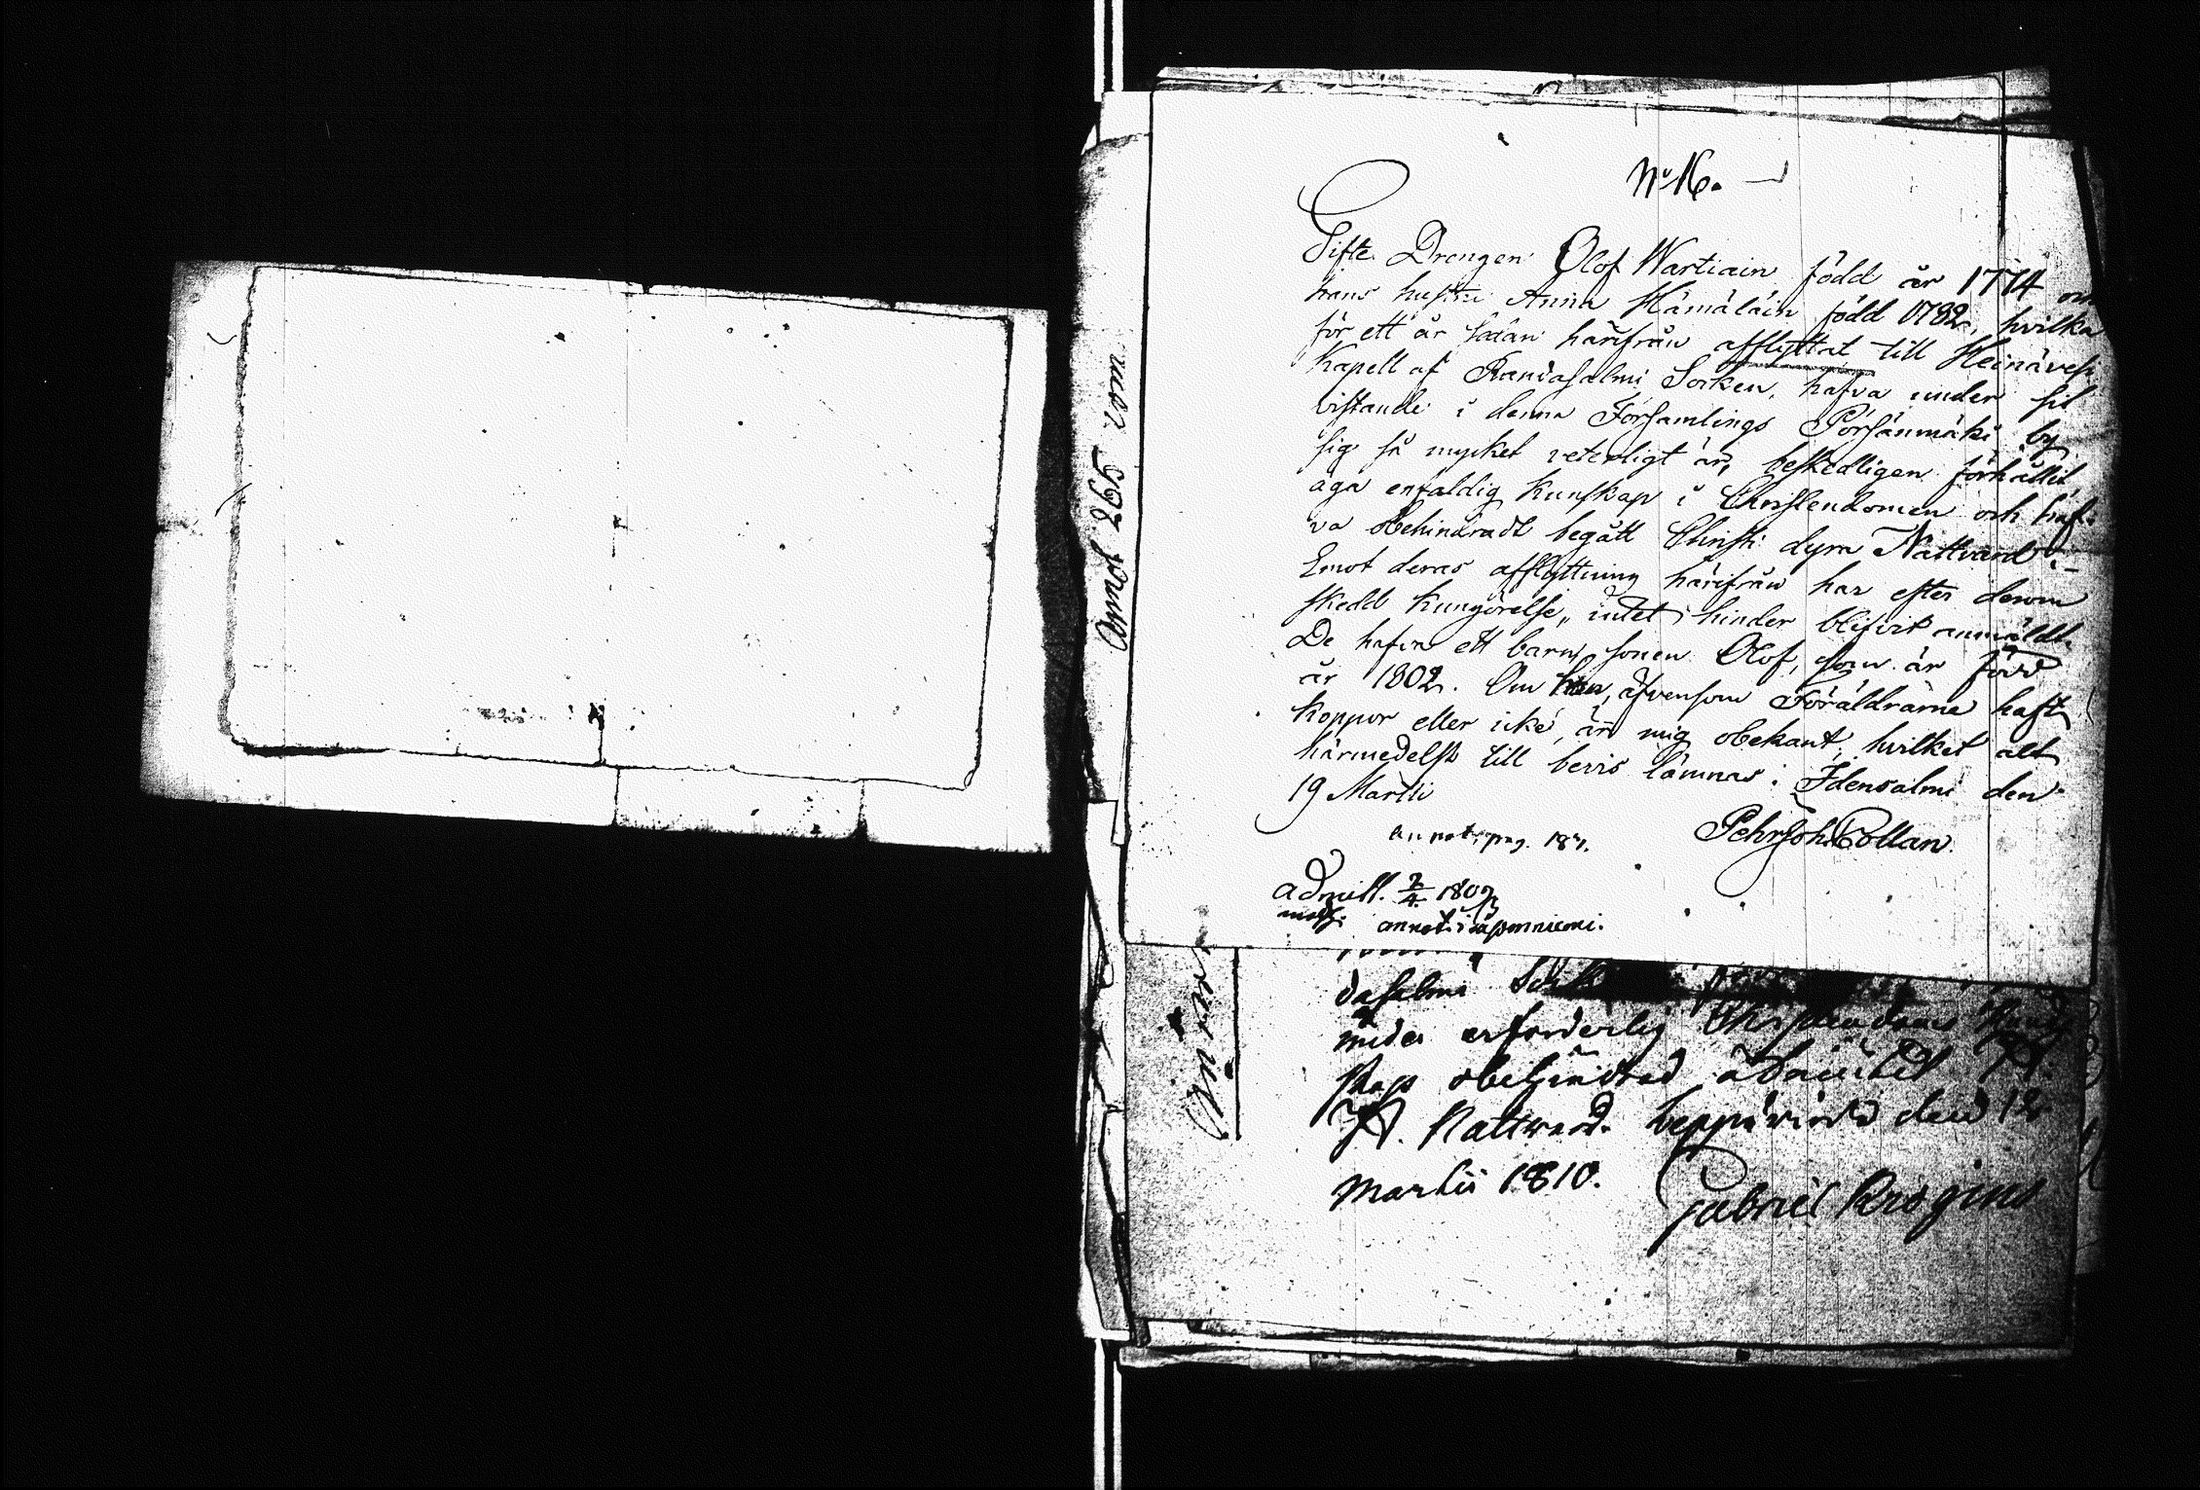 No 16.
Gifte Drengen Olof Wartiain född år 1774 och
hans hustru Anna Hämäläin född 1782, hvilka
för ett år sedan härifrån afflyttat till Heinävesi
Kapell af Randasalmi Socken, hafva under sit
vistande i denna Församlings Pörsänmäki by
sig så mycket veterligt är, beskedligen förhållit,
äga enfaldig kunskap i Christendomen och haf-
va obehindradt begått Christi dyra Nattvard.
Emot deras afflyttning härifrån har efter derom
skedd kungörelse, intet hinder blifvit anmäldt.
De hafva ett barn, sonen Olof, som är född
år 1802. Om han, äfvensom Föräldrarne haft
koppor eller icke, är mig obekant, hvilket alt
härmedelst till bevis lämnas: Idensalmi den
19 Martii
Pehr Joh. Collan.
annot. pag. 187.
admitt. 7/4 1807
annot. i
dasalmi Sock
under erforderlig Christendoms Kund
skap obehindrad admitted
H. Nattward. bepprövided den 12
Martii 1810.
Gabriel Krogius